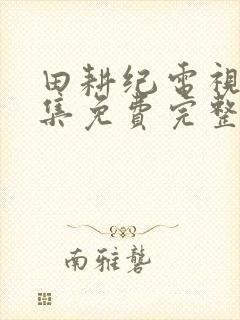 田耕纪电視
集免費完整
南雅礱